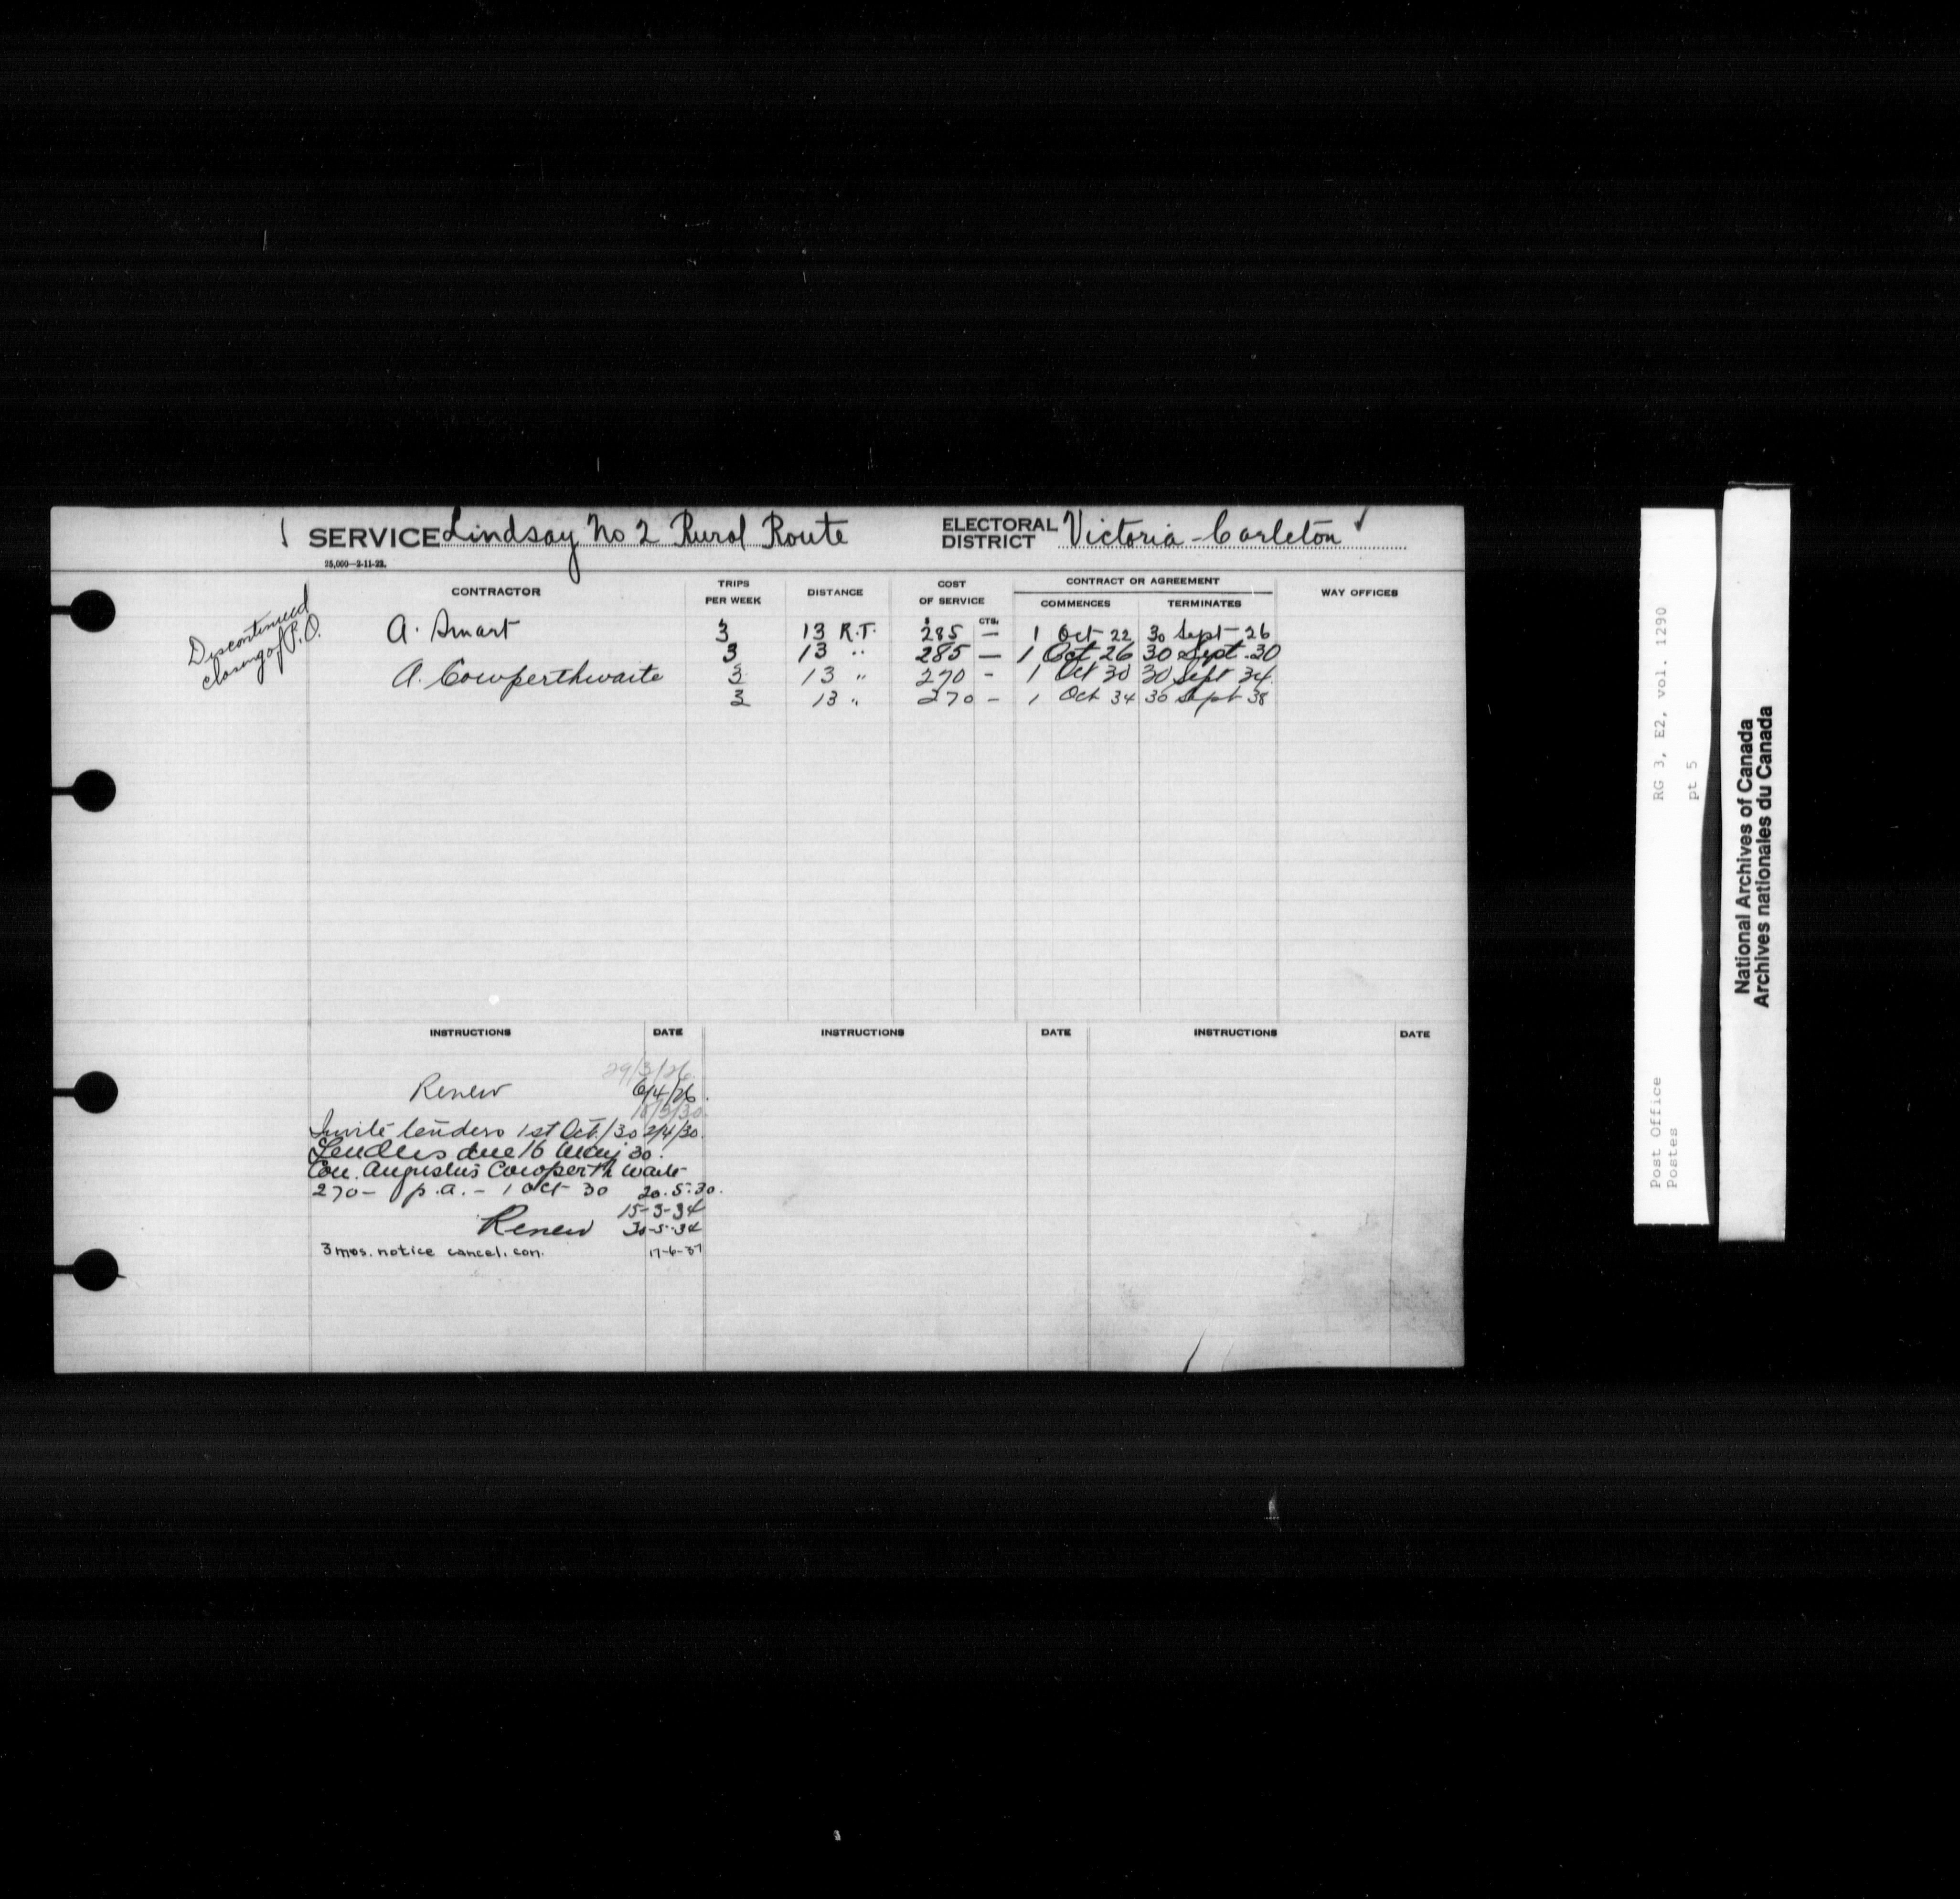 SERVICE Lindsay No 2 Rural Route ELECTORAL DISTRICT Victoria-Carleton ✓
25,000—2-11-22.
CONTRACTOR TRIPS PER WEEK DISTANCE COST OF SERVICE CONTRACT OR AGREEMENT WAY OFFICES
COMMENCES TERMINATES
$ CTS.
Discontinued
closing of P.O.
A. Smart 3 13 R.T. 285 — 1 Oct 22 30 Sept 26
3 13 " 285 — 1 Oct 26 30 Sept 30
A. Cowperthwaite 3 13 " 270 - 1 Oct 30 30 Sept 34
3 13 " 270 - 1 Oct 34 30 Sept 38
INSTRUCTIONS DATE INSTRUCTIONS DATE INSTRUCTIONS DATE
29/3/26.
Renew 6/4/26.
/3/30
Invite tenders 1st Oct/30 2/4/30.
Tenders due 16 May 30.
Con. Augustus Cowperthwaite
270- p.a. - 1 Oct 30 20.5.30.
15-3-34
Renew 30-5-34
3 mos. notice cancel. con. 17-6-37
RG 3, E2, vol. 1290
pt 5
Post Office
Postes
National Archives of Canada
Archives nationales du Canada